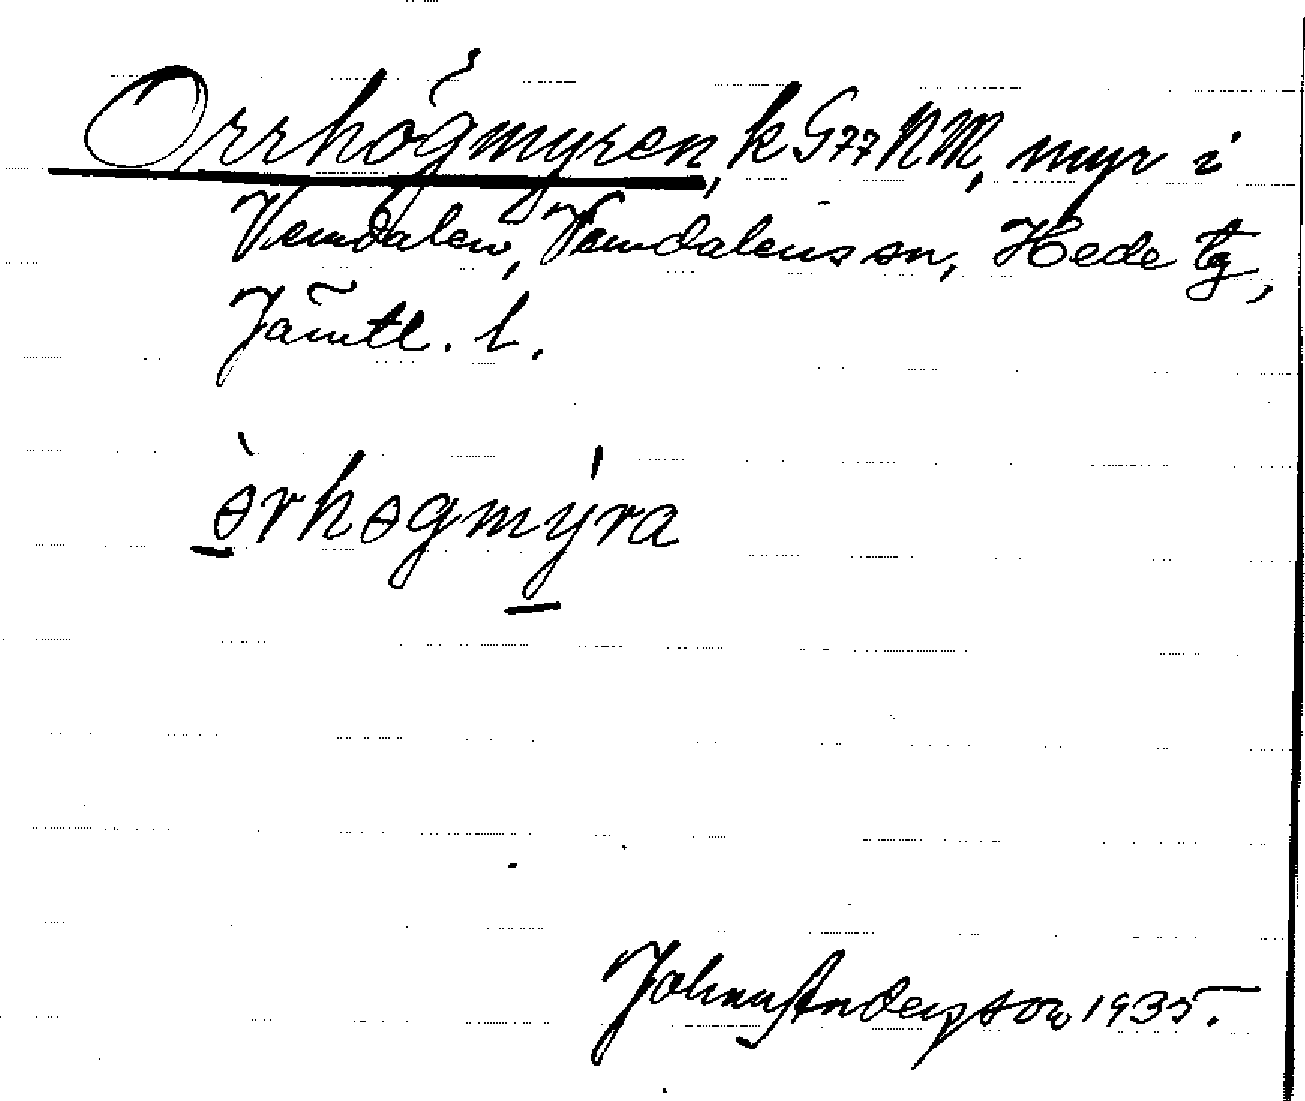 Orrhögmyren, k G77 NM, myr i
Vemdalen, Vemdalens sn, Hede tg,
Jämtl. l.
ò̱rhɵgmý̱ra
Johnny Anderson 1935.